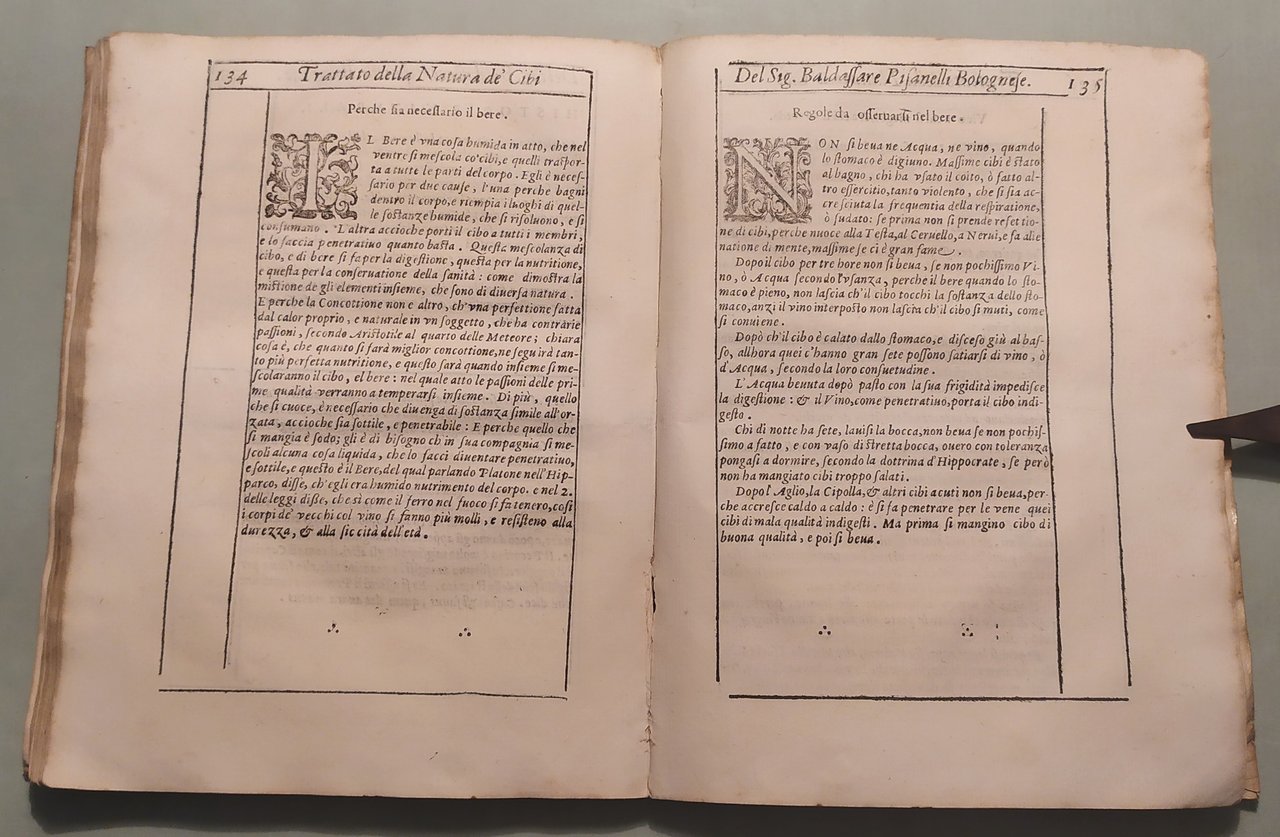 134 Trattato della Natura de' Cibi
Perche sia necessario il bere.
IL Bere è vna cosa humida in atto, che nel
ventre si mescola co' cibi, e quelli traspor-
ta a tutte le parti del corpo. Egli è neces-
sario per due cause, l'vna perche bagni
dentro il corpo, e riempia i luoghi di quel-
le sostanze humide, che si risoluono, e si
consumano. L'altra accioche porti il cibo a tutti i membri,
e lo faccia penetratiuo quanto basta. Questa mescolanza di
cibo, e di bere si fa per la digestione, questa per la nutritione,
e questa per la conseruatione della sanità: come dimostra la
mistione de gli elementi insieme, che sono di diuersa natura.
E perche la Concottione non e altro, ch'vna perfettione fatta
dal calor proprio, e naturale in vn soggetto, che ha contrarie
passioni, secondo Aristotile al quarto delle Meteore; chiara
cosa è, che quanto si farà miglior concottione, ne seguirà tan-
to più perfetta nutritione, e questo sarà quando insieme si me-
scolaranno il cibo, el bere: nel quale atto le passioni delle pri-
me qualità verranno a temperarsi insieme. Di più, quello
che si cuoce, è necessario che diuenga di sostanza simile all'or-
zata, accioche sia sottile, e penetrabile: E perche quello che
si mangia è sodo; gli è di bisogno ch'in sua compagnia si me-
scoli alcuna cosa liquida, che lo facci diuentare penetratiuo,
e sottile, e questo è il Bere, del qual parlando Platone nell'Hip-
parco, disse, ch'egli era humido nutrimento del corpo. e nel 2.
delle leggi disse, che sì come il ferro nel fuoco si fa tenero, così
i corpi de' vecchi col vino si fanno più molli, e resisteno alla
durezza, & alla siccità dell'età.
Del Sig. Baldassare Pisanelli Bolognese. 135
Regole da osseruarsi nel bere.
NON si beua ne Acqua, ne vino, quando
lo stomaco è digiuno. Massime cibi è stato
al bagno, chi ha vsato il coito, ò fatto al-
tro essercitio, tanto violento, che si sia ac-
cresciuta la frequentia della respiratione,
ò sudato: se prima non si prende refettio-
ne di cibi, perche nuoce alla Testa, al Ceruello, a Nerui, e fa alie
natione di mente, massime se ci è gran fame.
Dopo il cibo per tre hore non si beua, se non pochissimo Vi-
no, ò Acqua secondo l'vsanza, perche il bere quando lo sto-
maco è pieno, non lascia ch'il cibo tocchi la sostanza dello sto-
maco, anzi il vino interposto non lascia ch'il cibo si muti, come
si conuiene.
Dopò ch'il cibo è calato dallo stomaco, e disceso giù al bas-
so, allhora quei c'hanno gran sete possono satiarsi di vino, ò
d'Acqua, secondo la loro consuetudine.
L'Acqua beuuta dopò pasto con la sua frigidità impedisce
la digestione: & il Vino, come penetratiuo, porta il cibo indi-
gesto.
Chi di notte ha sete, lauisi la bocca, non beua se non pochis-
simo a fatto, e con vaso di stretta bocca, ouero con toleranza
pongasi a dormire, secondo la dottrina d'Hippocrate, se però
non ha mangiato cibi troppo salati.
Dopo l'Aglio, la Cipolla, & altri cibi acuti non si beua, per-
che accresce caldo a caldo: è si fa penetrare per le vene quei
cibi di mala qualità indigesti. Ma prima si mangino cibo di
buona qualità, e poi si beua.